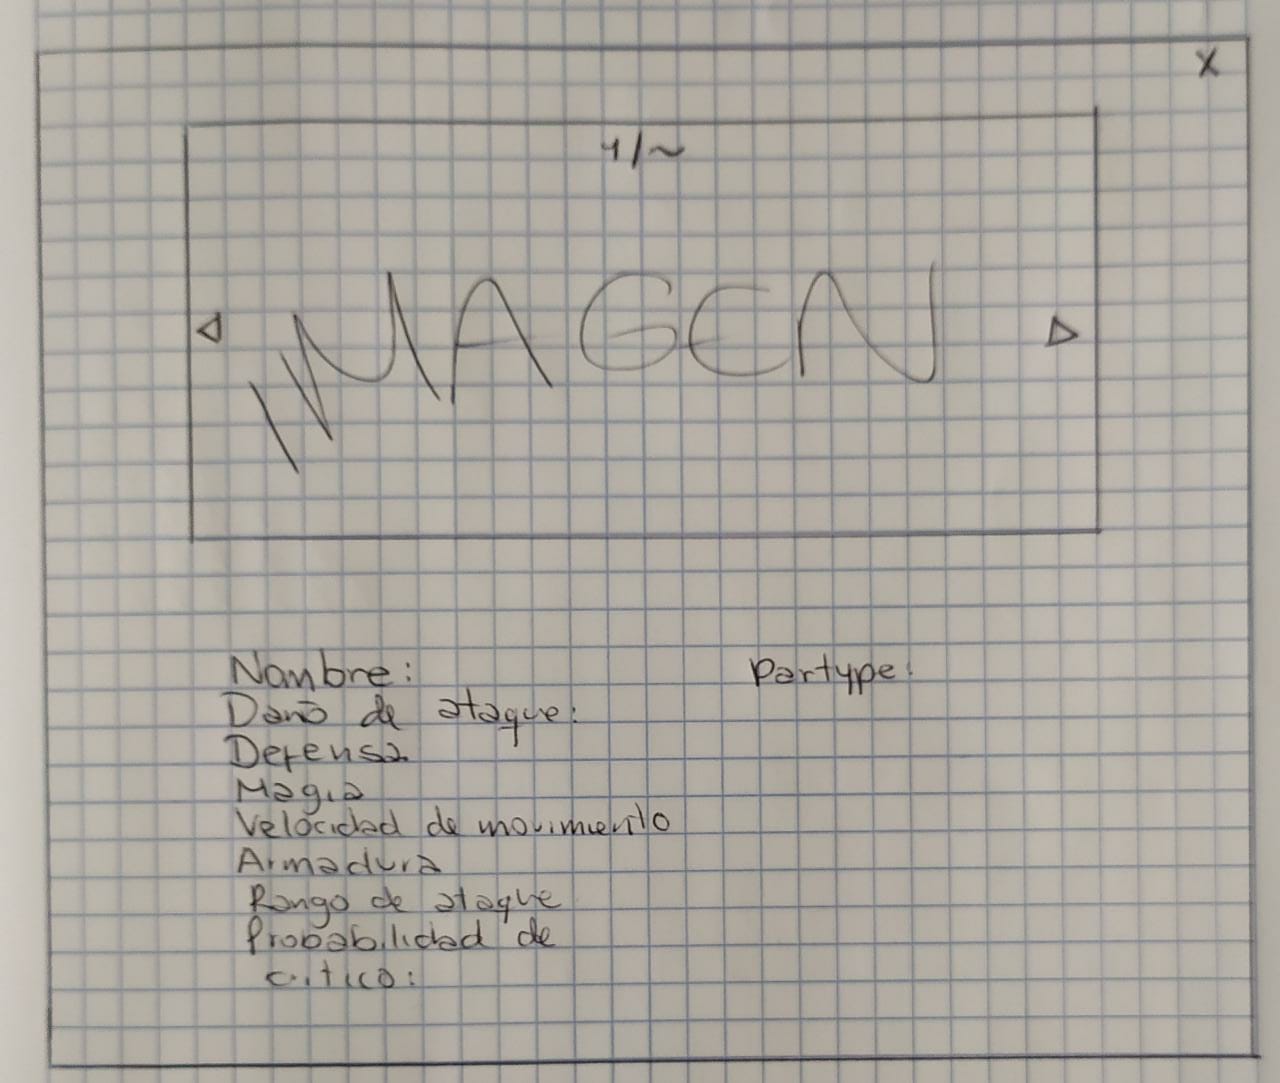 X
1/~
IMAGEN
Nombre:
Partype:
Daño de ataque:
Defensa
Magia
Velocidad de movimiento
Armadura
Rango de ataque
Probabilidad de
critico: